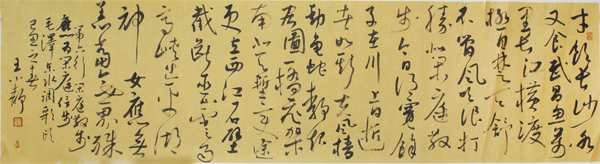 才饮长沙水
又食武昌鱼万
里长江横渡
极目楚天舒
不管风吹浪打
胜似闲庭散
步今日得宽馀
子在川上曰逝
者如斯夫风樯
动龟蛇静起
宏图一桥飞架
南北天堑变通途
更立西江石壁
截断巫山云雨
高峡出平湖
神女应无
恙当惊世界殊
第六行闲庭散步
应为闲庭信步
毛泽东水调歌头
王小静